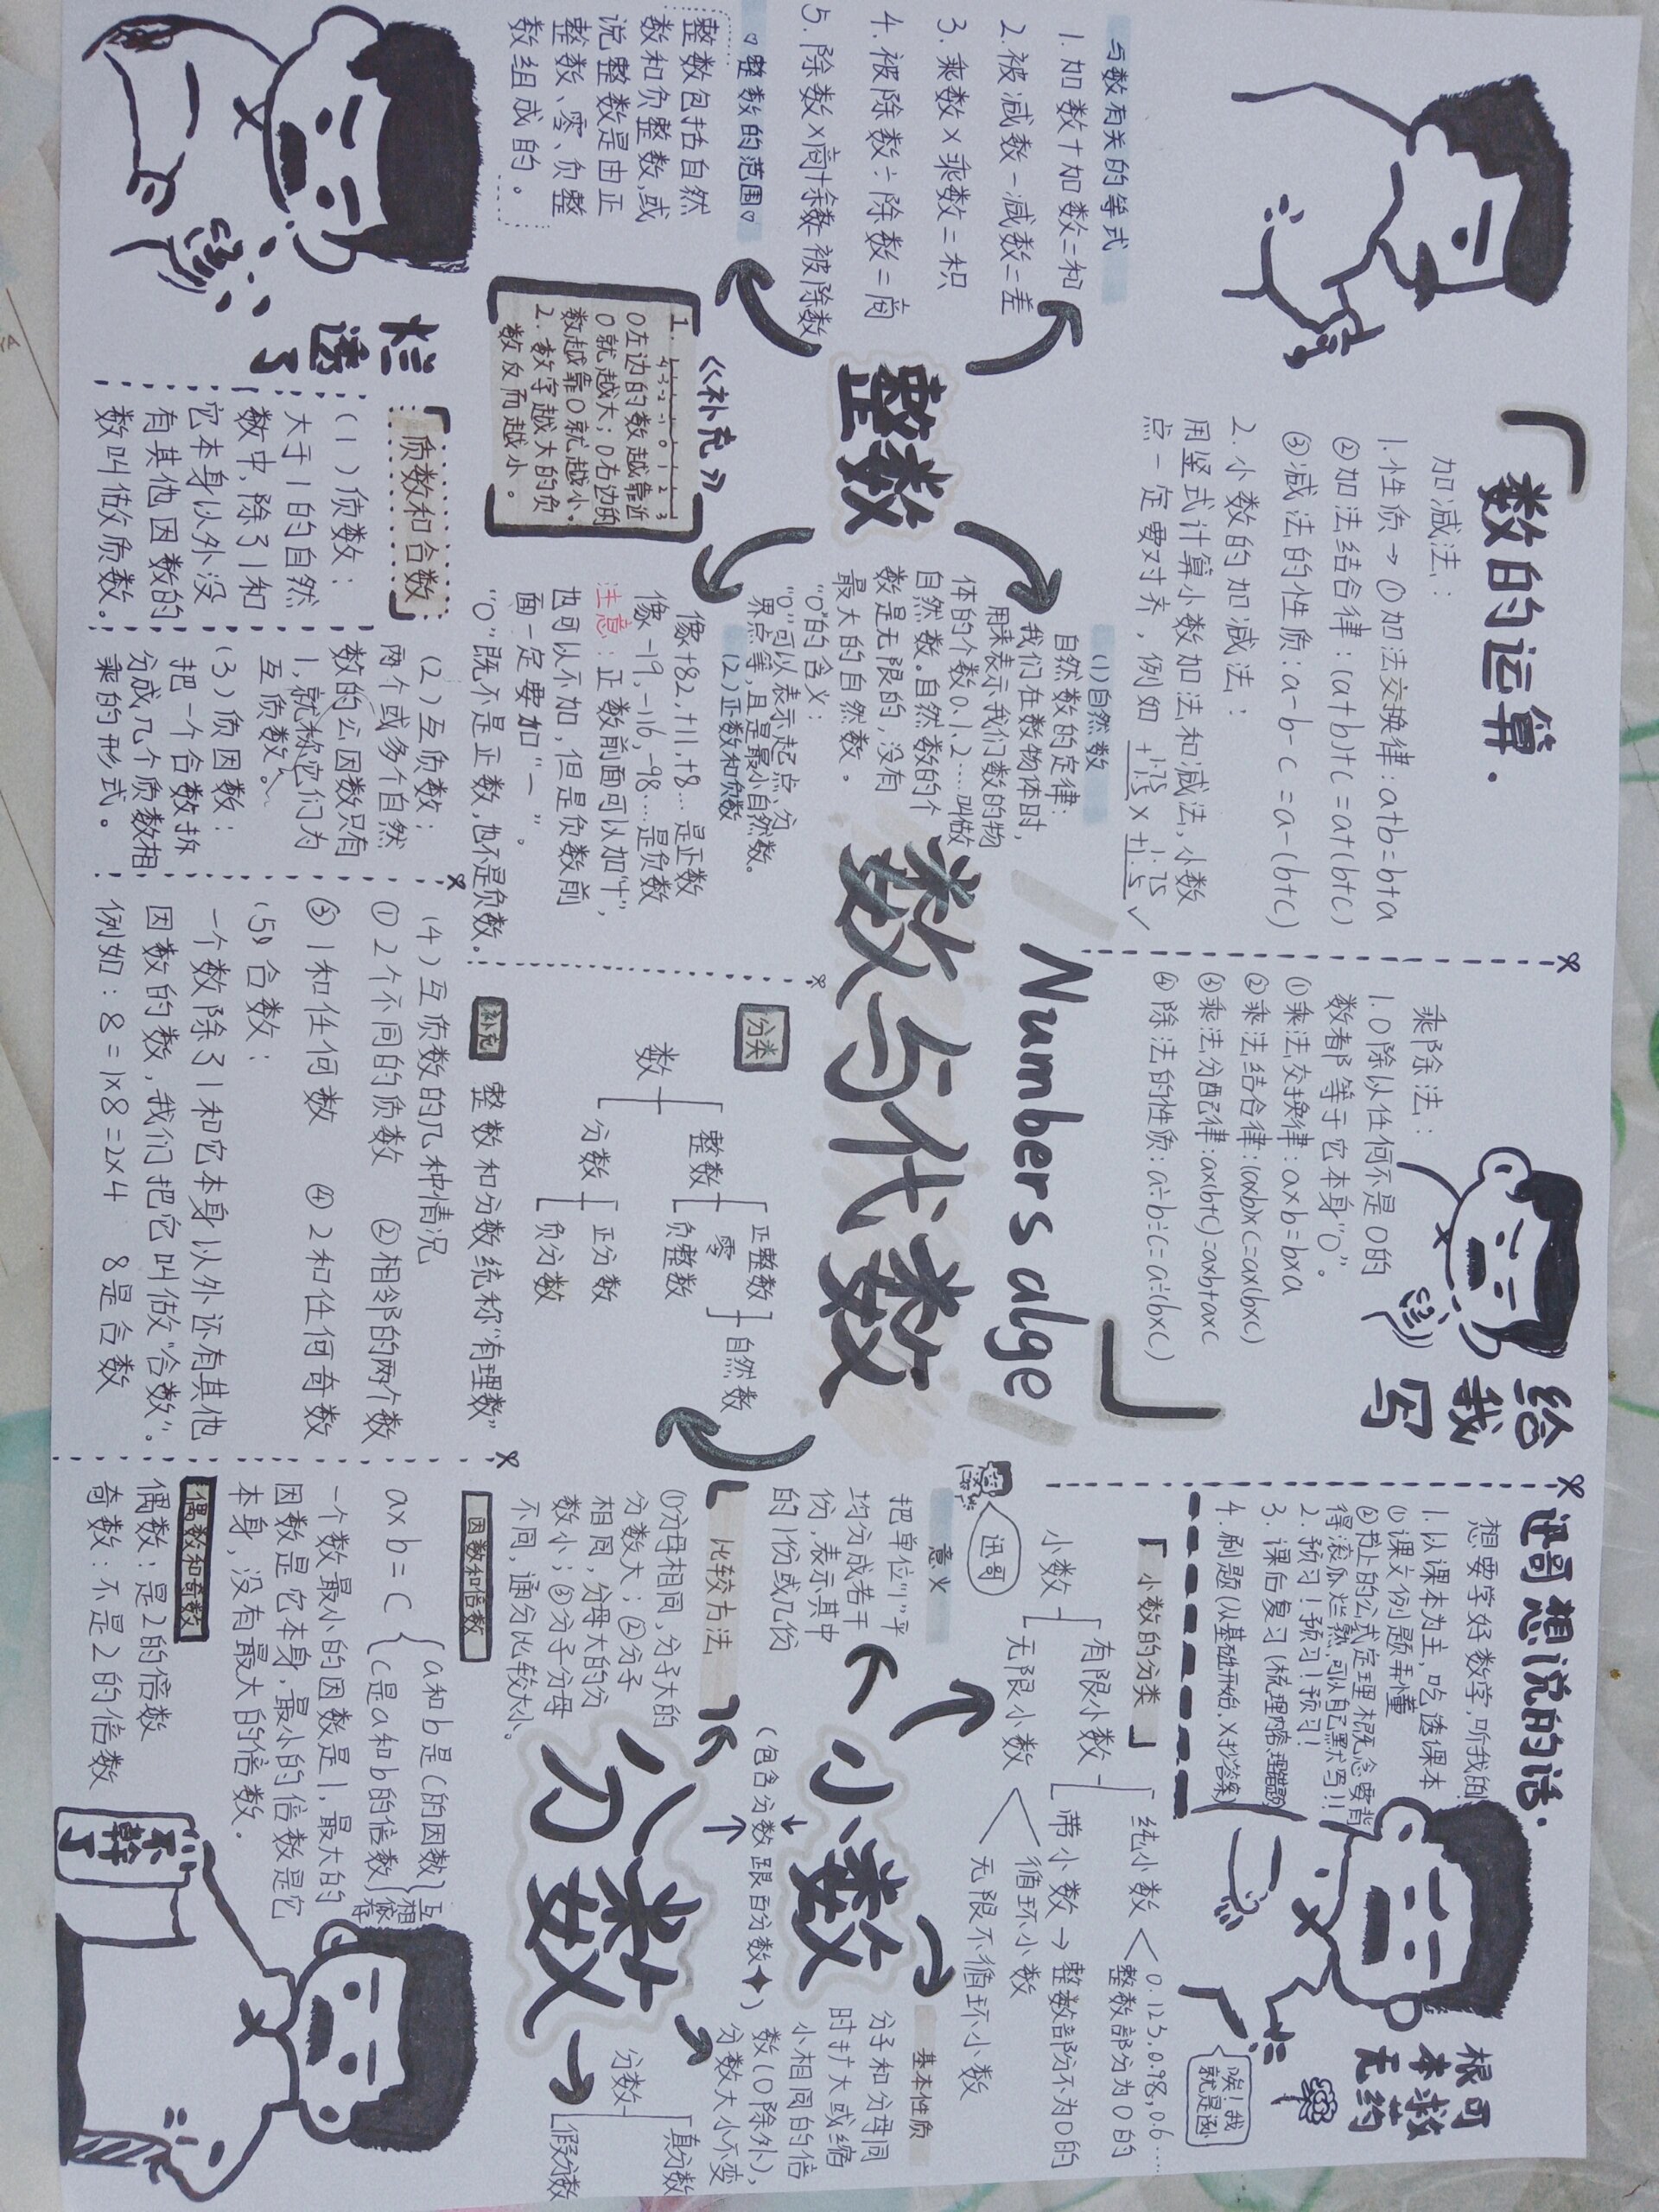 「数的运算.
加减法:
1.性质→①加法交换律:a+b=b+a
②加法结合律:(a+b)+c=a+(b+c)
③减法的性质:a-b-c=a-(b+c)
2.小数的加减法:
用竖式计算小数加法和减法,小数
点一定要对齐,例如
乘除法:
1.0除以任何不是0的
数都等于它本身"0"。
①乘法交换律:a×b=b×a
②乘法结合律:(a×b)×c=a×(b×c)
③乘法分配律:a×(b+c)=a×b+a×c
④除法的性质:a÷b÷c=a÷(b×c)
」
给
我
写
迅哥想说的话.
想要学好数学,听我的!
1.以课本为主,吃透课本
①课文例题弄懂
②书上的公式定理概念要背
得滚瓜烂熟,可以自己默写!!
2.预习!预习!预习!
3.课后复习(梳理内容,理错题)
4.刷题(从基础开始,X抄答案)
根可
本救
无药
唉!我
就是逊
与数有关的等式
1.加数+加数=和
2.被减数-减数=差
3.乘数×乘数=积
4.被除数÷除数=商
5.除数×商+余数=被除数
整数
(1)自然数
自然数的定律:
我们在数物体时,
用来表示我们数的物
体的个数0.1.2....叫做
自然数。自然数的个
数是无限的,没有
最大的自然数。
"0"的含义:
"0"可以表示起点、分
界点等,且是最小自然数。
(2)正数和负数
像+82,+11,+8...是正数
像-19,-116,-98...是负数
注意:正数前面可以加"+",
也可以不加,但是负数前
面一定要加"-"。
"0"既不是正数,也不是负数.
▽整数的范围▽
整数包括自然
数和负整数,或
说整数是由正
整数、零、负整
数组成的。
《补充》
1. -4 -3 -2 -1 0 1 2 3
0左边的数越靠近
0就越大;0右边的
数越靠0就越小。
2.数字越大的负
数反而越小。
Numbers alge
数与代数
分类
数
整数
正整数
零
负整数
自然数
分数
正分数
负分数
补充 整数和分数统称"有理数"
「小数的分类」
小数
有限小数
纯小数<0.123,0.98,0.6....
整数部分为0的
带小数→整数部分不为0的
无限小数
循环小数
无限不循环小数
迅哥
小数
(包含分数跟百分数✦)
分数
意义
把单位"1"平
均分成若干
份,表示其中
的1份或几份
比较方法
①分母相同,分子大的
分数大;②分子
相同,分母大的分
数小;③分子分母
不同,通分比较大小。
基本性质
分子和分母同
时扩大或缩
小相同的倍
数(0除外),
分数大小不变
分数
真分数
假分数
烂
透
了
「质数和合数」
(1)质数:
大于1的自然
数中,除了1和
它本身以外没
有其他因数的
数叫做质数.
(2)互质数:
两个或多个自然
数的公因数只有
1,就称它们为
互质数。
(3)质因数:
把一个合数拆
分成几个质数相
乘的形式。
(4)互质数的几种情况
①2个不同的质数 ②相邻的两个数
③1和任何数 ④2和任何奇数
(5)合数:
一个数除了1和它本身以外还有其他
因数的数,我们把它叫做"合数".
例如:8=1×8=2×4 8是合数
因数和倍数
a×b=c
a和b是c的因数
c是a和b的倍数
互相依存
一个数最小的因数是1,最大的
因数是它本身,最小的倍数是它
本身,没有最大的倍数.
偶数和奇数
偶数:是2的倍数
奇数:不是2的倍数
不幹
了